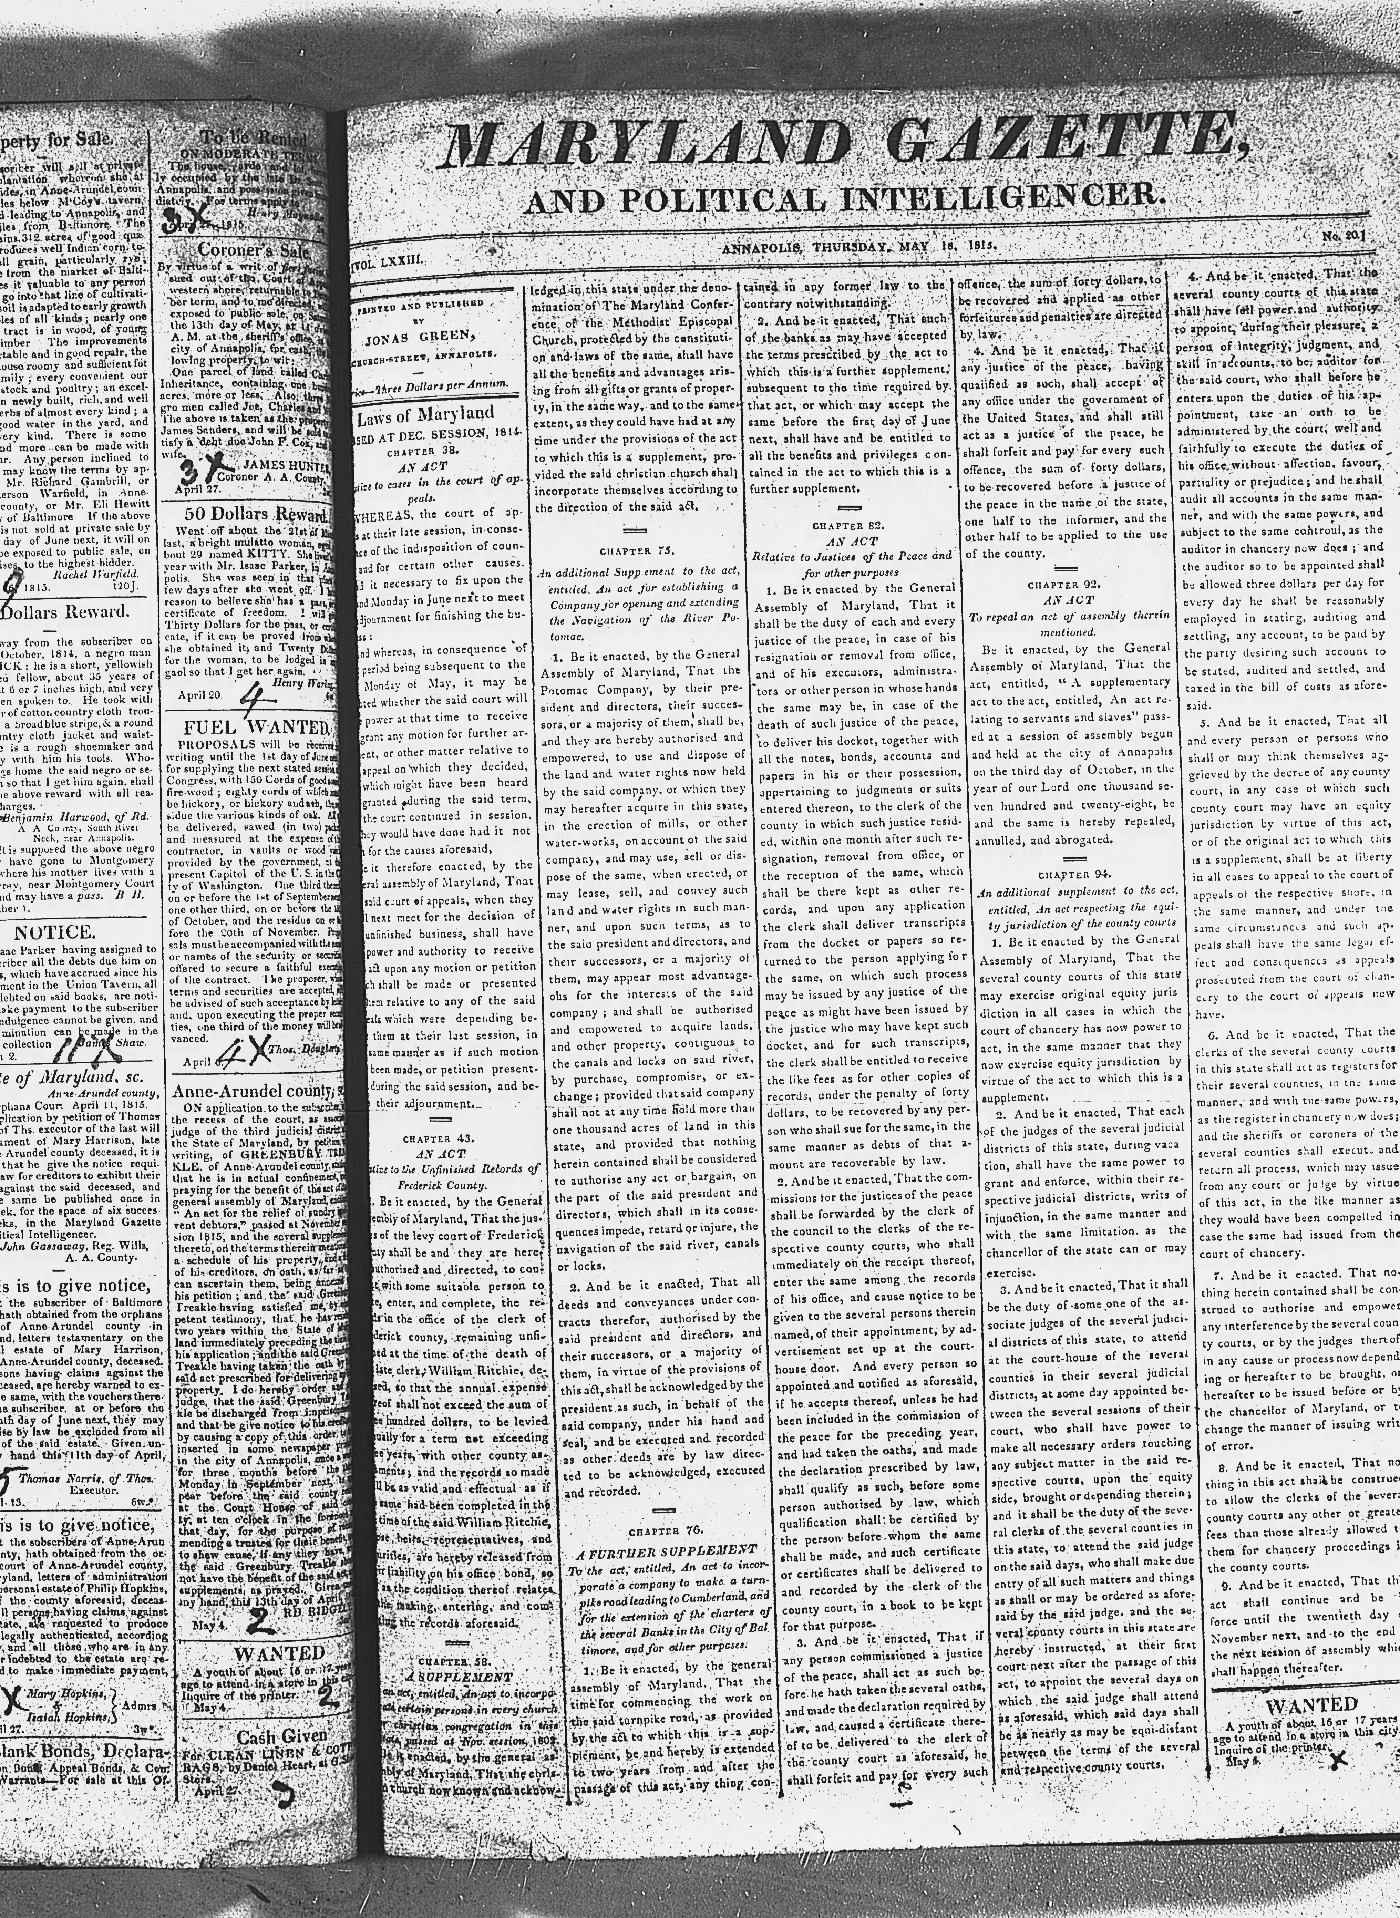 perty for Sale.
will sell at private
plantation whereon she at
sides, in Anne-Arundel coun-
les below M'Coy's tavern,
d leading to Annapolis, and
iles from Baltimore. The
ains 312 acres of good qua-
roduces well Indian corn, to-
ll grain, particularly rye;
e from the market of Balti-
es it valuable to any person
go into that line of cultivati-
soil is adapted to early growth
les of all kinds; nearly one
tract is in wood, of young
imber The improvements
table and in good repair, the
ouse roomy and sufficient for
mily; every convenient our
stock and poultry; an excel-
n newly built, rich, and well
erbs of almost every kind; a
good water in the yard, and
very kind. There is some
nd more can be made with
ur. Any person inclined to
may know the terms by ap-
Mr. Richard Gambrill, or
erson Warfield, in Anne-
county, or Mr. Eli Hewitt
of Baltimore If the above
is not sold at private sale by
day of June next, it will on
be exposed to public sale, on
ises, to the highest bidder.
Rachel Warfield.
1815. t20J.
Dollars Reward.
way from the subscriber on
October, 1814, a negro man
ICK: he is a short, yellowish
ed fellow, about 35 years of
t 6 or 7 inches high, and very
en spoken to. He took with
r of cotton country cloth trou-
a broad blue stripe, & a round
untry cloth jacket and waist-
e is a rough shoemaker and
y with him his tools. Who-
gs home the said negro or se-
so that I get him again, shall
he above reward with all rea-
harges.
Benjamin Harwood, of Rd.
A A County, South River
Neck, near Annapolis.
It is supposed the above negro
have gone to Montgomery
where his mother lives with a
ray, near Montgomery Court
nd may have a pass. B H.
ber 1.
NOTICE.
aac Parker having assigned to
criber all the debts due him on
s, which have accrued since his
ment in the Union Tavern, all
debted on said books, are noti-
ake payment to the subscriber
ndulgence cannot be given, and
mination can be made in the
collection Shaw.
2.
te of Maryland, sc.
Anne-Arundel county,
phans Court April 11, 1815.
plication by petition of Thomas
of Ths. executor of the last will
ament of Mary Harrison, late
Arundel county deceased, it is
that he give the notice requi-
aw for creditors to exhibit their
against the said deceased, and
e same be published once in
ek, for the space of six succes-
eks, in the Maryland Gazette
itical Intelligencer.
John Gassaway, Reg. Wills,
A. A. County.
is is to give notice,
t the subscriber of Baltimore
hath obtained from the orphans
of Anne Arundel county in
nd, letters testamentary on the
l estate of Mary Harrison,
Anne-Arundel county, deceased.
sons having claims against the
ceased, are hereby warned to ex-
e same, with the vouchers there-
e subscriber, at or before the
ath day of June next, they may
ise by law be excluded from all
of the said estate. Given un-
y hand this 11th day of April,
Thomas Norris, of Thos.
Executor.
l 13. 6w.
is is to give notice,
t the subscribers of Anne-Arun
nty, hath obtained from the or-
ourt of Anne-Arundel county,
ryland, letters of administration
personal estate of Philip Hopkins,
f the county aforesaid, deceas-
ll persons having claims against
tate, are requested to produce
legally authenticated, according
, and all those who are in any
r indebted to the estate are re-
d to make immediate payment,
Mary Hopkins,
Isaiah Hopkins, Admrs
il 27. 3w
lank Bonds, Declara-
on Bond, Appeal Bonds, & Com
Warrants—For sale at this Of-
To be Rented
ON MODERATE TERMS
The house, yards
ly occupied by the late
Annapolis, and possession given
diately. For terms apply to
3X 1815.
Coroner's Sale
By virtue of a writ of
sued out of the Court of
western shore, returnable to
ber term, and to me directed
exposed to public sale, on
the 13th day of May, at
A. M. at the sheriff's office
city of Annapolis, for cash,
lowing property, to wit:
One parcel of land called
Inheritance, containing one
acres, more or less. Also three
gro men called Joe, Charles and
The above is taken as the property
James Sanders, and will be sold
tisfy a debt due John F. Cox,
wife.
3X JAMES HUNTER
Coroner A. A. County
April 27.
50 Dollars Reward
Went off about the 21st of
last, a bright mulatto woman,
bout 29 named KITTY. She
year with Mr. Isaac Parker, in
polis. She was seen in that
few days after she went off. I
reason to believe she has a pass,
certificate of freedom. I will
Thirty Dollars for the pass, or
cate, if it can be proved from
she obtained it, and Twenty
for the woman, to be lodged in
gaol so that I get her again.
April 20. 4
FUEL WANTED
PROPOSALS will be received
writing until the 1st day of June
for supplying the next stated session
Congress, with 150 Cords of good
fire-wood; eighty cords of which
be hickory, or hickory and ash, the
sidue the various kinds of oak.
be delivered, sawed (in two)
and measured at the expense of
contractor, in vaults or wood
provided by the government, at
present Capitol of the U. S. in the
ty of Washington. One third
on or before the 1st of September
one other third, on or before the
of October, and the residue on or
fore the 20th of November.
sals must be accompanied with the
or names of the security or
offered to secure a faithful
of the contract. The proposer,
terms and securities are accepted,
be advised of such acceptance by
and, upon executing the proper
ties, one third of the money will
vanced.
April 4X Thos.
Anne-Arundel county,
ON application to the subscriber
the recess of the court, as
judge of the third judicial district
the State of Maryland, by petition
writing, of GREENBURY
KLE, of Anne-Arundel county,
that he is in actual confinement,
praying for the benefit of the act
general assembly of Maryland,
An act for the relief of sundry
vent debtors," passed at November
sion 1815, and the several
thereto, on the terms therein
a schedule of his property, and
of his creditors, on oath, as far
can ascertain them, being
his petition; and the said
Treakle having satisfied me, by
petent testimony, that he has
two years within the State of
land immediately preceding the
his application; and the said
Treakle having taken the oath by
said act prescribed for delivering
property. I do hereby order
judge, that the said Greenbury
kle be discharged from
and that he give notice to his
by causing a copy of this order
inserted in some newspaper
in the city of Annapolis, once
for three months before the
Monday in September next,
pear before the said county
at the Court House of said
ty, at ten o'clock in the forenoon
that day, for the purpose of
mending a trustee for their benefit
to shew cause, if any they have,
the said Greenbury Treakle
not have the benefit of the said
supplements, as prayed. Given
my hand, this 13th day of April
2 RD
May 4.
WANTED
A youth of about 16 or 17 years
age to attend in a store in this
Inquire of the printer. 2
May 4.
Cash Given
For CLEAN LINEN &
RAGS, by Daniel Heart, at
Store.
April 2
3
MARYLAND GAZETTE,
AND POLITICAL INTELLIGENCER.
VOL. LXXIII. ANNAPOLIS, THURSDAY, MAY 18, 1815. No. 20]
PRINTED AND PUBLISHED
BY
JONAS GREEN,
CHURCH-STREET, ANNAPOLIS.
Three Dollars per Annum.
Laws of Maryland
SED AT DEC. SESSION, 1814
CHAPTER 38.
AN ACT
to cases in the court of ap-
peals.
WHEREAS, the court of ap-
s at their late session, in conse-
ce of the indisposition of coun-
and for certain other causes.
it necessary to fix upon the
Monday in June next to meet
djournment for finishing the bu-
ss:
nd whereas, in consequence of
period being subsequent to the
Monday of May, it may be
ted whether the said court will
power at that time to receive
grant any motion for further ar-
ent, or other matter relative to
appeal on which they decided,
which might have been heard
granted during the said term,
the court continued in session,
they would have done had it not
for the causes aforesaid,
e it therefore enacted, by the
eral assembly of Maryland, That
said court of appeals, when they
l next meet for the decision of
unfinished business, shall have
power and authority to receive
act upon any motion or petition
ch shall be made or presented
them relative to any of the said
als which were depending be-
them at their last session, in
same manner as if such motion
been made, or petition present-
during the said session, and be-
their adjournment.
CHAPTER 43.
AN ACT
to the Unfinished Records of
Frederick County.
Be it enacted, by the General
embly of Maryland, That the jus-
s of the levy court of Frederick
ty shall be and they are here
uthorised and directed, to con
t with some suitable person to
e, enter, and complete, the re-
ds in the office of the clerk of
derick county, remaining unfi-
ed at the time of the death of
late clerk, William Ritchie, de-
sed, so that the annual expense
eof shall not exceed the sum of
hundred dollars, to be levied
ually for a term not exceeding
years, with other county as-
ments; and the records so made
ll be as valid and effectual as if
same had been completed in the
time of the said William Ritchie,
heirs, representatives, and
urities, are hereby released from
liability on his office bond, so
as the condition thereof relates
the making, entering, and com
the records aforesaid.
CHAPTER 58.
A SUPPLEMENT
an act, entitled, An act to incorpo
certain persons in every church
christian congregation in this
passed at Nov. session, 1802.
Be it enacted, by the general as
mbly of Maryland, That the chris-
church now known and acknow-
ledged in this state under the deno-
mination of The Maryland Confer-
ence of the Methodist Episcopal
Church, protected by the constituti-
on and laws of the same, shall have
all the benefits and advantages aris-
ing from all gifts or grants of proper-
ty, in the same way, and to the same
extent, as they could have had at any
time under the provisions of the act
to which this is a supplement, pro-
vided the said christian church shall
incorporate themselves according to
the direction of the said act,
CHAPTER 75.
An additional Supp ement to the act,
entitled. An act for establishing a
Company for opening and extending
the Navigation of the River Po-
tomac.
1. Be it enacted, by the General
Assembly of Maryland, That the
Potomac Company, by their pre-
sident and directors, their succes-
sors, or a majority of them, shall be,
and they are hereby authorised and
empowered, to use and dispose of
the land and water rights now held
by the said company, or which they
may hereafter acquire in this state,
in the erection of mills, or other
water-works, on account of the said
company, and may use, sell or dis-
pose of the same, when erected, or
may lease, sell, and convey such
land and water rights in such man-
ner, and upon such terms, as to
the said president and directors, and
their successors, or a majority of
them, may appear most advantage-
ous for the interests of the said
company; and shall be authorised
and empowered to acquire lands,
and other property, contiguous to
the canals and locks on said river,
by purchase, compromise, or ex-
change; provided that said company
shall not at any time hold more than
one thousand acres of land in this
state, and provided that nothing
herein contained shall be considered
to authorise any act or bargain, on
the part of the said president and
directors, which shall in its conse-
quences impede, retard or injure, the
navigation of the said river, canals
or locks.
2. And be it enacted, That all
deeds and conveyances under con-
tracts therefor, authorised by the
said president and directors, and
their successors, or a majority of
them, in virtue of the provisions of
this act, shall be acknowledged by the
president as such, in behalf of the
said company, under his hand and
seal, and be executed and recorded
as other deeds are by law direc-
ted to be acknowledged, executed
and recorded.
CHAPTER 76.
A FURTHER SUPPLEMENT
To the act, entitled, An act to incor-
porate a company to make a turn-
pike road leading to Cumberland, and
for the extension of the charters of
the several Banks in the City of Bal
timore, and for other purposes.
1. Be it enacted, by the general
assembly of Maryland, That the
time for commencing the work on
the said turnpike road, as provided
by the act to which this is a sup-
plement, be and hereby is extended
to two years from and after the
passage of this act, any thing con-
tained in any former law to the
contrary notwithstanding.
2. And be it enacted, That such
of the banks as may have accepted
the terms prescribed by the act to
which this is a further supplement,
subsequent to the time required by
that act, or which may accept the
same before the first day of June
next, shall have and be entitled to
all the benefits and privileges con-
tained in the act to which this is a
further supplement.
CHAPTER 82.
AN ACT
Relative to Justices of the Peace and
for other purposes
1. Be it enacted by the General
Assembly of Maryland, That it
shall be the duty of each and every
justice of the peace, in case of his
resignation or removal from office,
and of his executors, administra-
tors or other person in whose hands
the same may be, in case of the
death of such justice of the peace,
to deliver his docket, together with
all the notes, bonds, accounts and
papers in his or their possession,
appertaining to judgments or suits
entered thereon, to the clerk of the
county in which such justice resid-
ed, within one month after such re-
signation, removal from office, or
the reception of the same, which
shall be there kept as other re-
cords, and upon any application
the clerk shall deliver transcripts
from the docket or papers so re-
turned to the person applying for
the same, on which such process
may be issued by any justice of the
peace as might have been issued by
the justice who may have kept such
docket, and for such transcripts,
the clerk shall be entitled to receive
the like fees as for other copies of
records, under the penalty of forty
dollars, to be recovered by any per-
son who shall sue for the same, in the
same manner as debts of that a-
mount are recoverable by law.
2. And be it enacted, That the com-
missions for the justices of the peace
shall be forwarded by the clerk of
the council to the clerks of the re-
spective county courts, who shall
immediately on the receipt thereof,
enter the same among the records
of his office, and cause notice to be
given to the several persons therein
named, of their appointment, by ad-
vertisement set up at the court-
house door. And every person so
appointed and notified as aforesaid,
if he accepts thereof, unless he had
been included in the commission of
the peace for the preceding year,
and had taken the oaths, and made
the declaration prescribed by law,
shall qualify as such, before some
person authorised by law, which
qualification shall be certified by
the person before whom the same
shall be made, and such certificate
or certificates shall be delivered to
and recorded by the clerk of the
county court, in a book to be kept
for that purpose.
3. And be it enacted, That if
any person commissioned a justice
of the peace, shall act as such be-
fore he hath taken the several oaths,
and made the declaration required by
law, and caused a certificate there-
of to be delivered to the clerk of
the county court as aforesaid, he
shall forfeit and pay for every such
offence, the sum of forty dollars, to
be recovered and applied as other
forfeitures and penalties are directed
by law.
4. And be it enacted, That if
any justice of the peace, having
qualified as such, shall accept of
any office under the government of
the United States, and shall still
act as a justice of the peace, he
shall forfeit and pay for every such
offence, the sum of forty dollars,
to be recovered before a justice of
the peace in the name of the state,
one half to the informer, and the
other half to be applied to the use
of the county.
CHAPTER 92.
AN ACT
To repeal an act of assembly therein
mentioned.
Be it enacted, by the General
Assembly of Maryland, That the
act, entitled, "A supplementary
act to the act, entitled, An act re-
lating to servants and slaves" pass-
ed at a session of assembly begun
and held at the city of Annapolis
on the third day of October, in the
year of our Lord one thousand se-
ven hundred and twenty-eight, be
and the same is hereby repealed,
annulled, and abrogated.
CHAPTER 94.
An additional supplement to the act,
entitled, An act respecting the equi-
ty jurisdiction of the county courts
1. Be it enacted by the General
Assembly of Maryland, That the
several county courts of this state
may exercise original equity juris
diction in all cases in which the
court of chancery has now power to
act, in the same manner that they
now exercise equity jurisdiction by
virtue of the act to which this is a
supplement.
2. And be it enacted, That each
of the judges of the several judicial
districts of this state, during vaca
tion, shall have the same power to
grant and enforce, within their re-
spective judicial districts, writs of
injunction, in the same manner and
with the same limitation. as the
chancellor of the state can or may
exercise.
3. And be it enacted, That it shall
be the duty of some one of the as-
sociate judges of the several judici-
al districts of this state, to attend
at the court-house of the several
counties in their several judicial
districts, at some day appointed be-
tween the several sessions of their
court, who shall have power to
make all necessary orders touching
any subject matter in the said re-
spective courts, upon the equity
side, brought or depending therein;
and it shall be the duty of the seve-
ral clerks of the several counties in
this state, to attend the said judge
on the said days, who shall make due
entry of all such matters and things
as shall or may be ordered as afore-
said by the said judge, and the se-
veral county courts in this state are
hereby instructed, at their first
court next after the passage of this
act, to appoint the several days on
which the said judge shall attend
as aforesaid, which said days shall
be as nearly as may be equi-distant
between the terms of the several
and respective county courts.
4. And be it enacted, That the
several county courts of this state
shall have full power and authority
to appoint, during their pleasure, a
person of integrity, judgment, and
skill in accounts, to be auditor for
the said court, who shall before he
enters upon the duties of his ap-
pointment, take an oath to be
administered by the court, well and
faithfully to execute the duties of
his office without affection, favour,
partiality or prejudice; and he shall
audit all accounts in the same man-
ner, and with the same powers, and
subject to the same controul, as the
auditor in chancery now does; and
the auditor so to be appointed shall
be allowed three dollars per day for
every day he shall be reasonably
employed in stating, auditing and
settling, any account, to be paid by
the party desiring such account to
be stated, audited and settled, and
taxed in the bill of costs as afore-
said.
5. And be it enacted, That all
and every person or persons who
shall or may think themselves ag-
grieved by the decree of any county
court, in any case of which such
county court may have an equity
jurisdiction by virtue of this act,
or of the original act to which this
is a supplement, shall be at liberty
in all cases to appeal to the court of
appeals of the respective shore, in
the same manner, and under the
same circumstances and such ap-
peals shall have the same legal ef-
fect and consequences as appeals
prosecuted from the court of chan-
cery to the court of appeals now
have.
6. And be it enacted, That the
clerks of the several county courts
in this state shall act as registers for
their several counties, in the same
manner, and with the same powers,
as the register in chancery now does;
and the sheriffs or coroners of the
several counties shall execut. and
return all process, which may issue
from any court or judge by virtue
of this act, in the like manner as
they would have been compelled in
case the same had issued from the
court of chancery.
7. And be it enacted. That no-
thing herein contained shall be con-
strued to authorise and empower
any interference by the several coun
ty courts, or by the judges thereof
in any cause or process now depend
ing or hereafter to be brought, or
hereafter to be issued before or by
the chancellor of Maryland, or to
change the manner of issuing writ
of error.
8. And be it enacted, That no
thing in this act shall be construe
to allow the clerks of the severa
county courts any other or greate
fees than those already allowed t
them for chancery proceedings i
the county courts.
9. And be it enacted, That thi
act shall continue and be
force until the twentieth day
November next, and to the end
the next session of assembly whic
shall happen thereafter.
WANTED
A youth of about 16 or 17 years
age to attend in a store in this city
Inquire of the printer.
May 4. X